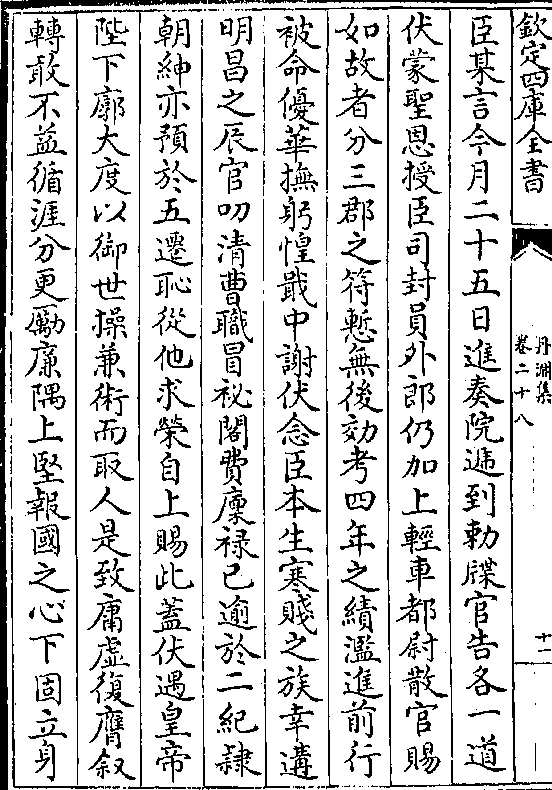 欽定四庫全書
丹淵集
卷二十八
十一
臣某言今月二十五日進奏院遞到勅牒官告各一道
伏蒙聖恩授臣司封員外郎仍加上輕車都尉散官賜
如故者分三郡之符慙無後効考四年之績濫進前行
被命優華撫躬惶戢中謝伏念臣本生寒賤之族幸遘
明昌之辰官叨清曹職冒祕閣費廩禄已逾於二紀隷
朝紳亦預於五遷恥從他求榮自上賜此蓋伏遇皇帝
陛下廓大度以御世操兼術而取人是致庸虛復膺叙
轉敢不益循涯分更勵廉隅上堅報國之心下固立身